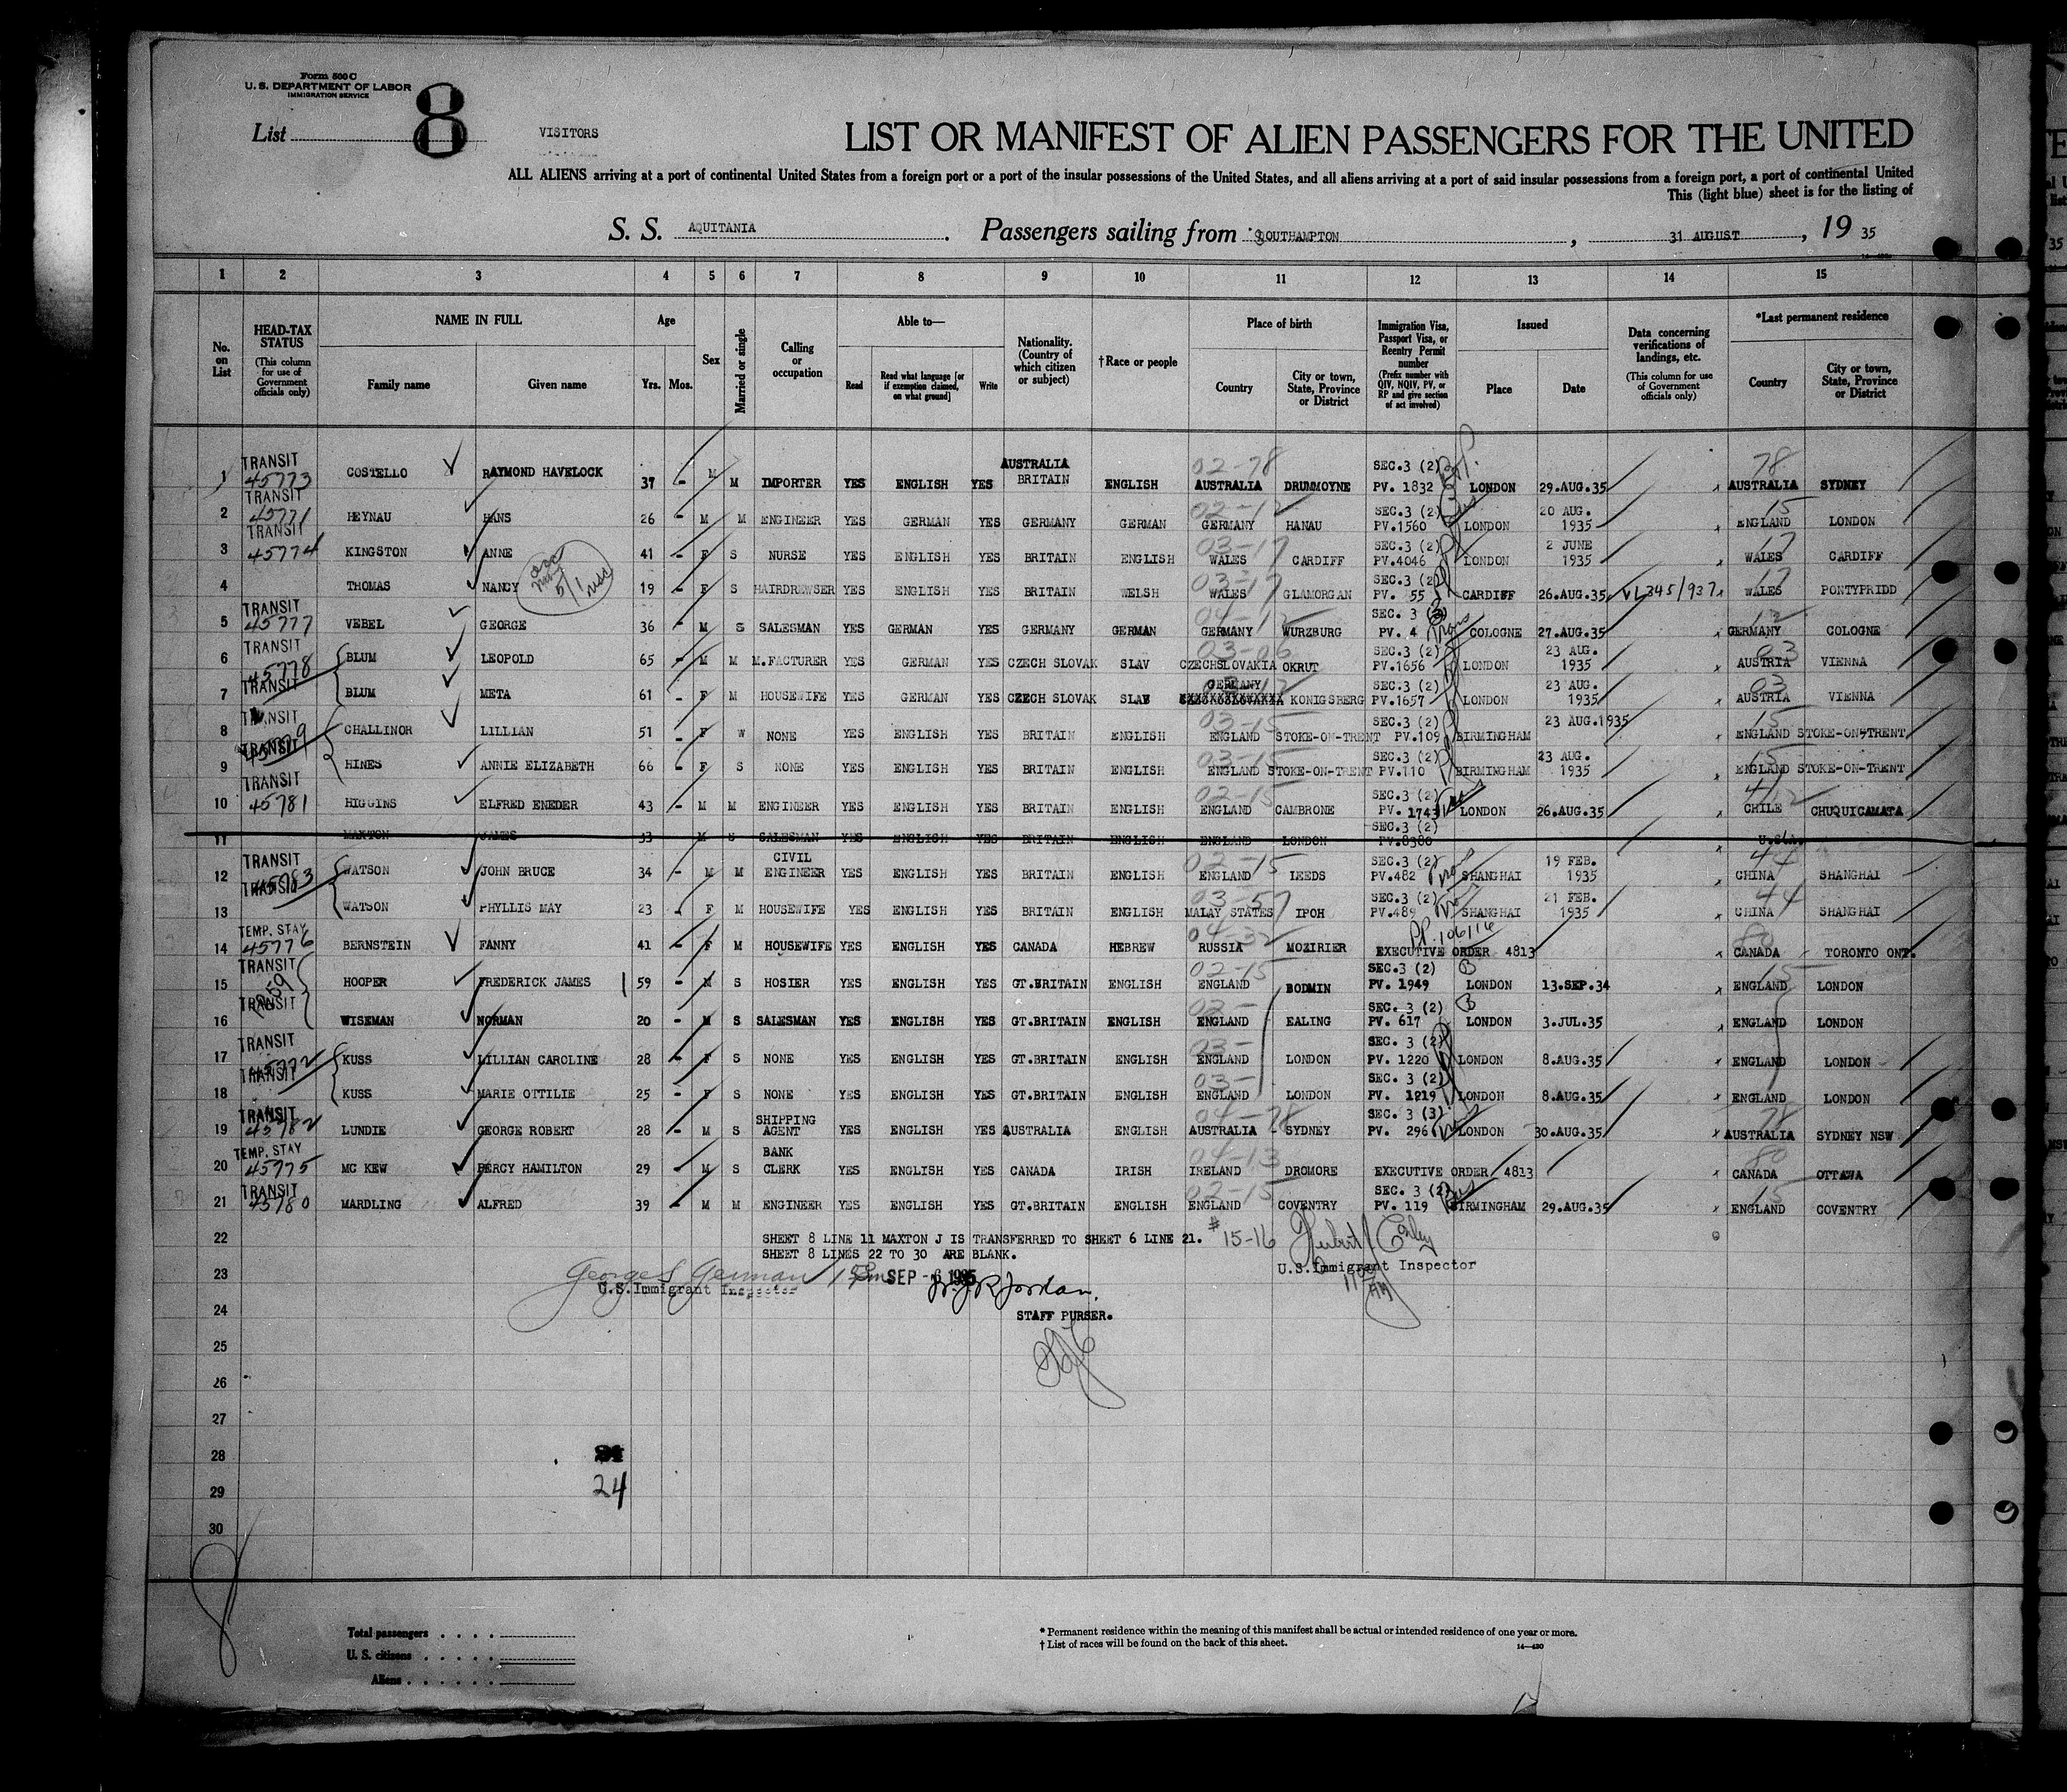 Form 500 C
U. S. DEPARTMENT OF LABOR
IMMIGRATION SERVICE
List 8 VISITORS
LIST OR MANIFEST OF ALIEN PASSENGERS FOR THE UNITED
ALL ALIENS arriving at a port of continental United States from a foreign port or a port of the insular possessions of the United States, and all aliens arriving at a port of said insular possessions from a foreign port, a port of continental United
This (light blue) sheet is for the listing of
S. S. AQUITANIA. Passengers sailing from SOUTHAMPTON, 31 AUGUST, 19 35
1 2 3 4 5 6 7 8 9 10 11 12 13 14 15
No. on List
HEAD-TAX STATUS (This column for use of Government officials only)
NAME IN FULL Family name Given name
Age Yrs. Mos.
Sex
Married or single
Calling or occupation
Able to— Read Read what language [or if exemption claimed, on what ground] Write
Nationality. (Country of which citizen or subject)
†Race or people
Place of birth Country City or town, State, Province or District
Immigration Visa, Passport Visa, or Reentry Permit number (Prefix number with QIV, NQIV, PV, or RP and give section of act involved)
Issued Place Date
Data concerning verifications of landings, etc. (This column for use of Government officials only)
*Last permanent residence Country City or town, State, Province or District
1 TRANSIT 45773 COSTELLO RAYMOND HAVELOCK 37 - M M IMPORTER YES ENGLISH YES AUSTRALIA BRITAIN ENGLISH 02-78 AUSTRALIA DRUMMOYNE SEC.3 (2) PV. 1832 LONDON 29.AUG.35 78 AUSTRALIA SYDNEY
2 TRANSIT 45771 HEYNAU HANS 26 - M M ENGINEER YES GERMAN YES GERMANY GERMAN 02-12 GERMANY HANAU SEC.3 (2) PV.1560 LONDON 20 AUG. 1935 15 ENGLAND LONDON
3 TRANSIT 45774 KINGSTON ANNE 41 - F S NURSE YES ENGLISH YES BRITAIN ENGLISH 03-17 WALES CARDIFF SEC.3 (2) PV.4046 LONDON 2 JUNE 1935 17 WALES CARDIFF
4 THOMAS NANCY 19 - F S HAIRDREWSER YES ENGLISH YES BRITAIN WELSH 03-17 WALES GLAMORGAN SEC.3 (2) PV. 55 CARDIFF 26.AUG.35 VL345/937 17 WALES PONTYPRIDD
5 TRANSIT 45777 VEBEL GEORGE 36 - M S SALESMAN YES GERMAN YES GERMANY GERMAN 04-12 GERMANY WURZBURG SEC. 3 PV. 4 COLOGNE 27.AUG.35 12 GERMANY COLOGNE
6 TRANSIT 45778 BLUM LEOPOLD 65 - M M M.FACTURER YES GERMAN YES CZECH SLOVAK SLAV 03-06 CZECHSLOVAKIA OKRUT SEC.3 (2) PV.1656 LONDON 23 AUG. 1935 03 AUSTRIA VIENNA
7 TRANSIT BLUM META 61 - F M HOUSEWIFE YES GERMAN YES CZECH SLOVAK SLAV GERMANY KONIGSBERG SEC.3 (2) PV.1657 LONDON 23 AUG. 1935 03 AUSTRIA VIENNA
8 TRANSIT CHALLINOR LILLIAN 51 - F W NONE YES ENGLISH YES BRITAIN ENGLISH 03-15 ENGLAND STOKE-ON-TRENT SEC.3 (2) PV.109 BIRMINGHAM 23 AUG.1935 15 ENGLAND STOKE-ON-TRENT
9 TRANSIT HINES ANNIE ELIZABETH 66 - F S NONE YES ENGLISH YES BRITAIN ENGLISH 03-15 ENGLAND STOKE-ON-TRENT SEC.3 (2) PV.110 BIRMINGHAM 23 AUG. 1935 15 ENGLAND STOKE-ON-TRENT
10 TRANSIT 45781 HIGGINS ELFRED ENEDER 43 - M M ENGINEER YES ENGLISH YES BRITAIN ENGLISH 02-15 ENGLAND CAMBRONE SEC.3 (2) PV. 1743 LONDON 26.AUG.35 CHILE CHUQUICAMATA
11 MAXTON JAMES 33 M S SALESMAN YES ENGLISH YES BRITAIN ENGLISH ENGLAND LONDON SEC.3 (2) PV.8380 U.S.A.
12 TRANSIT 45783 WATSON JOHN BRUCE 34 - M M CIVIL ENGINEER YES ENGLISH YES BRITAIN ENGLISH 02-15 ENGLAND LEEDS SEC.3 (2) PV.482 SHANGHAI 19 FEB. 1935 44 CHINA SHANGHAI
13 TRANSIT WATSON PHYLLIS MAY 23 - F M HOUSEWIFE YES ENGLISH YES BRITAIN ENGLISH 03-57 MALAY STATES IPOH SEC.3 (2) PV.489 SHANGHAI 21 FEB. 1935 44 CHINA SHANGHAI
14 TEMP. STAY 45776 BERNSTEIN FANNY 41 - F M HOUSEWIFE YES ENGLISH YES CANADA HEBREW 04-32 RUSSIA MOZIRIER PP.106116 EXECUTIVE ORDER 4813 80 CANADA TORONTO ONT.
15 TRANSIT HOOPER FREDERICK JAMES 59 - M S HOSIER YES ENGLISH YES GT.BRITAIN ENGLISH 02-15 ENGLAND BODMIN SEC.3 (2) PV. 1949 LONDON 13.SEP.34 15 ENGLAND LONDON
16 TRANSIT WISEMAN NORMAN 20 - M S SALESMAN YES ENGLISH YES GT.BRITAIN ENGLISH 02- ENGLAND EALING SEC. 3 (2) PV. 617 LONDON 3.JUL.35 ENGLAND LONDON
17 TRANSIT 45772 KUSS LILLIAN CAROLINE 28 - F S NONE YES ENGLISH YES GT.BRITAIN ENGLISH 03- ENGLAND LONDON SEC. 3 (2) PV. 1220 LONDON 8.AUG.35 ENGLAND LONDON
18 TRANSIT KUSS MARIE OTTILIE 25 - F S NONE YES ENGLISH YES GT.BRITAIN ENGLISH 03- ENGLAND LONDON SEC. 3 (2) PV. 1219 LONDON 8.AUG.35 ENGLAND LONDON
19 TRANSIT 45782 LUNDIE GEORGE ROBERT 28 - M S SHIPPING AGENT YES ENGLISH YES AUSTRALIA ENGLISH 04-78 AUSTRALIA - SYDNEY SEC. 3 (3) PV. 296 LONDON 30.AUG.35 78 AUSTRALIA SYDNEY NSW
20 TEMP. STAY 45775 MC KEW PERCY HAMILTON 29 - M S BANK CLERK YES ENGLISH YES CANADA IRISH 04-13 IRELAND DROMORE EXECUTIVE ORDER 4813 80 CANADA OTTAWA
21 TRANSIT 45780 MARDLING ALFRED 39 - M M ENGINEER YES ENGLISH YES GT.BRITAIN ENGLISH 02-15 ENGLAND COVENTRY SEC. 3 (2) PV. 119 BIRMINGHAM 29.AUG.35 15 ENGLAND COVENTRY
22 SHEET 8 LINE 11 MAXTON J IS TRANSFERRED TO SHEET 6 LINE 21. # 15-16
SHEET 8 LINES 22 TO 30 ARE BLANK.
23 George S German SEP - 6 1935 U.S.Immigrant Inspector
U.S.Immigrant Inspector Jordan.
24 STAFF PURSER.
25
26
27
28
29 24
30
8
Total passengers
U. S. citizens
Aliens
* Permanent residence within the meaning of this manifest shall be actual or intended residence of one year or more.
† List of races will be found on the back of this sheet.
14—430